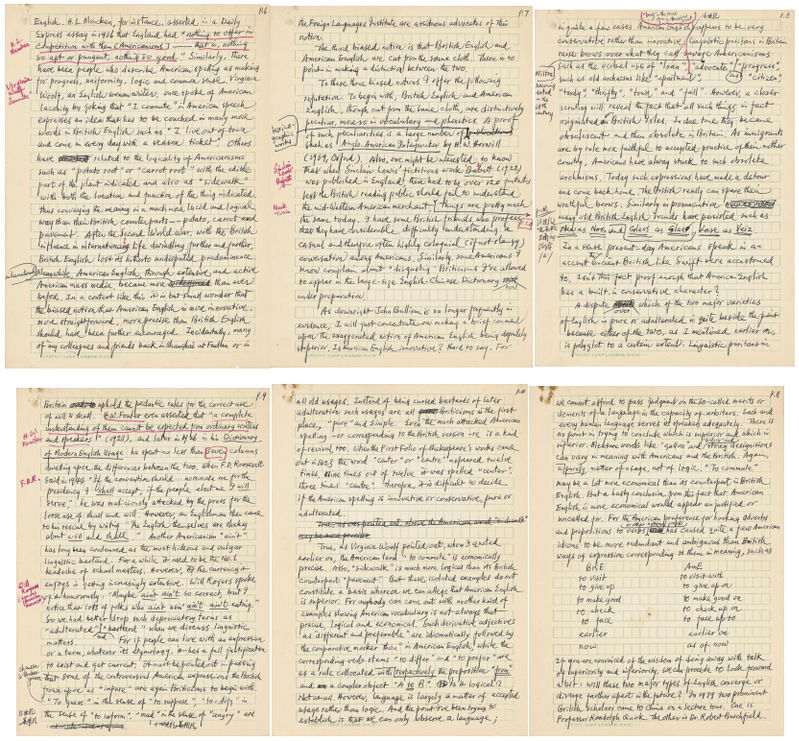 P.6
English. H.L. Mencken, for instance, asserted in a Daily
Express essay in 1936 that England had "nothing to offer in
competition with them (Americanisms) — that is, nothing
so apt or pungent, nothing so good." Similarly, there
have been people who describe American spelling as making
for progress, uniformity, logic and common sense. Virginia
Woolf, an English woman writer, once spoke of American
by joking that "I commute" in American speech
expresses an idea that has to be couched in many more
words in British English such as "I live out of town
and come in every day with a season ticket." Others
have related to the logicality of Americanisms
such as "potato root" or "carrot root" with the edible
part of the plant indicated and also as "sidewalk"
with both the location and function of the thing indicated,
thus conveying the meaning in a much more lucid and logical
way than their British counterparts — potato, carrot and
pavement. After the Second World War, with the British
influence in international life dwindling further and further,
British English lost its hitherto undisputed predominance.
Meanwhile, American English, through extensive and active
American mass media, became more widespread than ever
before. In a context like this it is but small wonder that
the biased notion that American English is more innovative,
more straightforward, more precise than British English
should have been further encouraged. Incidentally, many
of my colleagues and friends back in Shanghai at Fudan or in
H.L. Mencken
P.7
the Foreign Languages Institute are assiduous advocates of this
notion.
The third biased notion is that British English and
American English are cut from the same cloth. There is no
point in making a distinction between the two.
To these three biased notions I offer the following
refutation. To begin with, British English and American
English, though cut from the same cloth, are distinctively
peculiar, more so in vocabulary and phonetics. As proof
of such peculiarities is a large number of
such as Anglo-American Interpreter by H.W. Horwill
(1939, Oxford). Also, one might be interested to know
that when Sinclair Lewis' fictitious work Babbit (1922)
was published in England there had to be over 120 footnotes
lest the British reading public should fail to understand
the mid-Western American merchant. Things are pretty much
the same today. I have some British friends who profess
that they have considerable difficulty understanding a
casual and therefore often highly colloquial (if not slangy)
conversation among Americans. Similarly, some Americans I
know complain about "disgusting" Briticisms I've allowed
to appear in the large-size English-Chinese Dictionary now
under preparation.
As downright John Bullism is no longer frequently in
evidence, I will just concentrate on making a brief comment
upon the exaggerated notion of American English being definitely
superior. Is American English innovative? Hard to say. For
lexicographic works
Sinclair Lewis' Babbit
Mark Twain
P.8
in quite a few cases American English appears to be very
conservative rather than innovative. Linguistic puritans in Britain
raise brows over what they call vulgar Americanisms
such as the verbal use of "loan", "advocate", "progress",
such as old archaisms like "apartment" and "citizen",
"tardy", "thrifty", "town", and "fall". However, a closer
scrutiny will reveal the fact that all such things in fact
originated on British Isles. In due time they became
obsolescent and then obsolete in Britain. As immigrants
are by rule more faithful to accepted practice of their mother
country, Americans have always stuck to such obsolete
archaisms. Today such expressions have made a detour
and come back home. The British really can spare them
wrathful brows. Similarly in pronunciation,
many old British sounds have persisted such as
and Glass as Glæs, Vase as Veiz.
In a sense present-day Americans speak in an
accent ancient British like Swift were accustomed
to. Isn't this fact proof enough that American English
has a built-in conservative character?
A dispute over which of the two major varieties
of English is pure or adulterated is quite besides the point
because either of the two, as I mentioned earlier on,
is polyglot to a certain extent. Linguistic puritans in
P.9
Britain uphold the pedantic rules for the correct use
of will & shall. H.W. Fowler even asserted that "a complete
understanding of them cannot be expected from ordinary writers
and speakers!" (1921), and later in 1926 in his Dictionary
of Modern English Usage he spent no less than seven columns
dwelling upon the differences between the two. When F.D. Roosevelt
said in 1944 "If the convention should nominate me for the
presidency I shall accept; if the people elect me I will
serve," he was maliciously attacked by the press for the
loose use of shall and will. However, an Englishman then came
to his rescue by writing "The English themselves are shaky
about will and shall." Another Americanism "ain't"
has long been condemned as the most hideous and vulgar
linguistic bastard. For a while it used to be the No.1
headache of school masters. However, the currency it
enjoys is getting increasingly extensive. Will Rogers spoke
of it humorously: "Maybe ain't ain't so correct, but I
notice that lots of folks who ain't usin' ain't ain't eating."
So we had better drop such depreciatory terms as
"adulterated" and "bastard" when we discuss linguistic
matters. For if people can live with an expression
or a term, whatever its etymology, it has a full justification
to exist and get current. It must be pointed out in passing
that some of the controversial American expressions the British
frown upon as "impure" are again Briticisms to begin with.
"To guess" in the sense of "to suppose", "to advise" in
the sense of "to inform", "mad" in the sense of "angry" are
H.W. Fowler
F.D.R.
Will Rogers
P.10
all old usages. Instead of being cursed bastards of later
adulteration such usages are all Briticisms in the first
place, "pure" and simple. Even the much attacked American
spelling -er corresponding to the British version -re is a kind
of revival, too. When the First Folio of Shakespeare's works came
out in 1623 the word "center" or "centre" appeared twelve
times. Nine times out of twelve it was spelled "center",
three times "centre". Therefore, it is difficult to decide
if the American spelling is innovative or conservative, pure or
adulterated.
True, as Virginia Woolf pointed out, whom I quoted
earlier on, the American term "to commute" is economically
precise. Also, "sidewalk" is much more logical than its British
counterpart "pavement". But these isolated examples do not
constitute a basis whereon we can allege that American English
is superior. For anybody can come out with another kind of
examples showing American vocabulary is not always that
precise, logical and economical. Such derivative adjectives
as "different and preferable" are idiomatically followed by
the comparative marker "than" in American English, while the
corresponding verb stems "to differ" and "to prefer" are
as a rule collocated with respectively the preposition "from"
and a coupler object "A to B". Is it logical?
Not at all. However, language is largely a matter of accepted
usage rather than logic. And the point I've been trying to
establish is that we can only observe a language;
P.11
we cannot afford to pass judgment on the so-called merits or
demerits of a language in the capacity of arbiters. Each and
every human language serves its speakers adequately. There is
no point in trying to conclude which is superior and which is
inferior. Nickname words like "yellow" and various designations
can vary in meaning with Americans and the British. Again,
a purely matter of usage, not of logic. "To commute"
may be a lot more economical than its counterpart in British
English. But a hasty conclusion from this fact that American
English is more economical would appear unjustified or
uncalled for. For the American preference for hooking adverbs
and prepositions to verbs has caused quite a few American
idioms to be more redundant and ambiguous than British
ways of expression corresponding to them in meaning, such as
BrE AmE
to visit to visit with
to give up to give up on
to make good to make good on
to check to check up on
to face to face up to
earlier earlier on
now as of now
If you are convinced of the wisdom of being away with talk
of superiority and inferiority, we can proceed to look forward
a bit. Will these two major types of English converge or
diverge farther apart in the future? In 1979 two prominent
British scholars came to China on a lecture tour. One is
Professor Randolph Quirk. The other is Dr. Robert Burchfield.